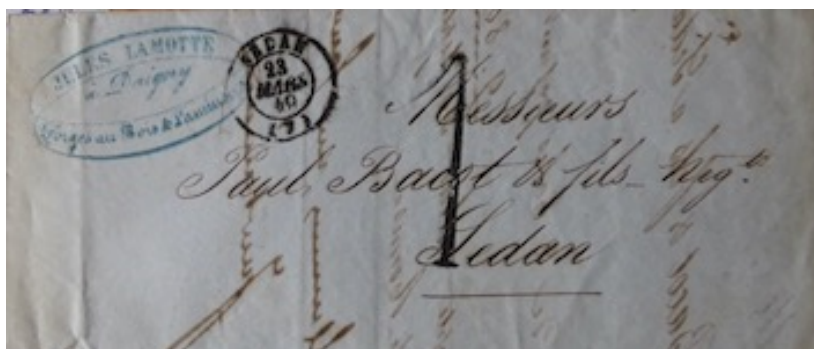 JULES LAMOTTE
à Daigny
Forges au Bois & Laminoirs
SEDAN
23
MARS
49
(7)
1
Messieurs
Paul Bacot & fils Negts
Sedan